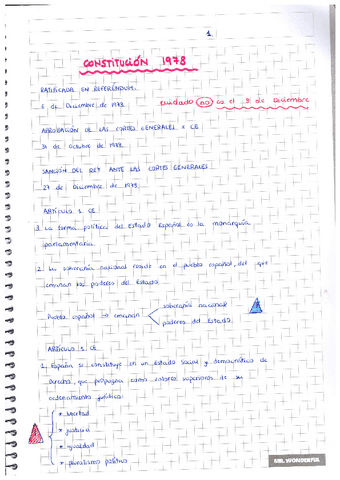 1
CONSTITUCIÓN 1978
RATIFICADA EN REFERÉNDUM.
6 de Diciembre de 1978. cuidado (no) es el 9 de Diciembre
APROBACIÓN DE LAS CORTES GENERALES x CE
31 de octubre de 1978.
SANCIÓN DEL REY ANTE LAS CORTES GENERALES
27 de Diciembre de 1978
ARTÍCULO 1 CE
3. La forma política del Estado Español es la monarquía
parlamentaria.
2. La soberanía nacional reside en el pueblo español, del que
emanan los poderes del Estado.
Pueblo español → emanan
soberanía nacional
poderes del Estado.
ARTÍCULO 1. CE
1. España se constituye en un Estado social y democrático de
Derecho, que propugna como valores superiores de su
ordenamiento jurídico:
* libertad
* justicia
* igualdad
* pluralismo político
MR. WONDERFUL